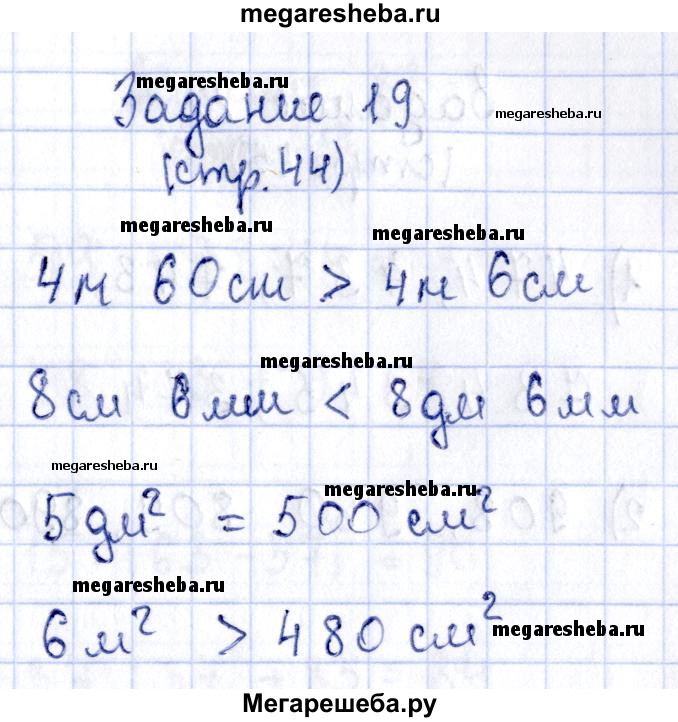 megaresheba.ru
megaresheba.ru
Задание 19
megaresheba.ru
(стр. 44)
megaresheba.ru
megaresheba.ru
4м 60см > 4м 6см
megaresheba.ru
8см 6мм < 8дм 6мм
megaresheba.ru
megaresheba.ru
5 дм² = 500 см²
megaresheba.ru
6 м² > 480 см²
megaresheba.ru
Мегарешеба.ру